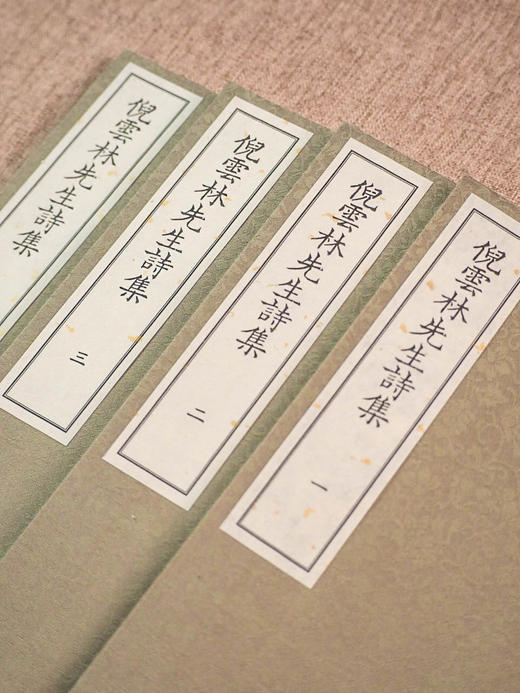 倪雲林先生詩集
一
倪雲林先生詩集
二
倪雲林先生詩集
三
倪雲林先生詩集